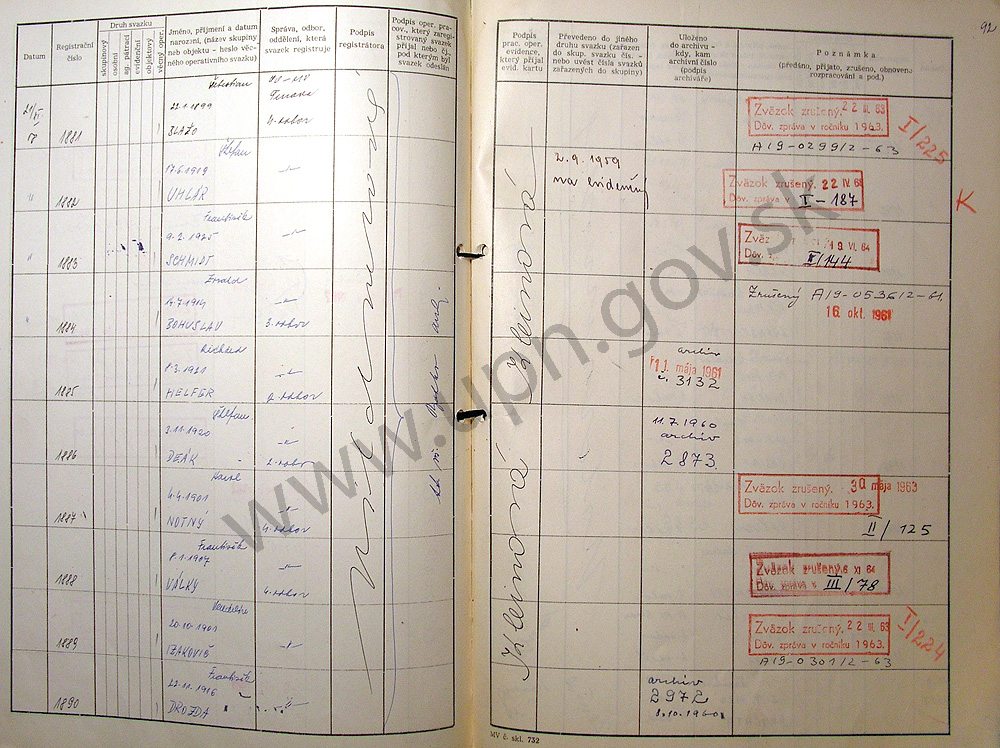 Datum
Registrační číslo
Druh svazku
skupinový
osobní
ag. pátrací
evidenční
objektový
věcný oper.
Jméno, přijmení a datum
narození, (název skupiny
neb objektu - heslo věc-
ného operativního svazku)
Správa, odbor,
oddělení, která
svazek registruje
Podpis
registrátora
Podpis oper. pra-
cov., který zaregi-
strovaný svazek
přijal nebo čj.
pod kterým byl
svazek odeslán
Podpis
prac. oper.
evidence,
který přijal
evid. kartu
Převedeno do jiného
druhu svazku (zařazen
do skup. svazku čís. -
nebo uvést čísla svazků
zařazených do skupiny)
Uloženo
do archivu -
kdy, kam
archivní číslo
(podpis
archiváře)
Poznámka
(předáno, přijato, zrušeno, obnoveno
rozpracování a pod.)
92
1881
Šebastian
22.1.1899
BLAŽO
4. odbor
Zväzok zrušený. 22 III. 63
Dôv. zpráva v ročníku 1963.
A19-0299/2-63
I/225
" 1882
Štefan
17.6.1919
UHLÁR
2.9.1959
na evidenčný
Zväzok zrušený. 22 IV. 64
Dôv. zpráva v I-187
K
" 1883
František
9.2.1925
SCHMIDT
19 VI. 64
II/144
" 1884
14.7.1914
BOHUSLAV
3. odbor
Zrušený A19-0536/2-61.
16. okt. 1961
1885
Richard
8.3.1921
HELFER
2. odbor
archív
11. mája 1961
č. 3132
1886
Štefan
3.11.1920
DEÁK
2. odbor
11.7.1960
archív
2873.
1887
Karol
4.4.1901
NOTNÝ
4. odbor
Zväzok zrušený. 30 mája 1963
Dôv. zpráva v ročníku 1963.
II/125
1888
František
8.1.1907
VALKY
4. odbor
Zväzok zrušený. 6 XI 64
Dôv. zpráva v III/78
1889
20.10.1901
IZAKOVIČ
Zväzok zrušený. 22 III. 63
Dôv. zpráva v ročníku 1963.
A19-0301/2-63
I/224
1890
František
22.11.1916
DROZDA
archív
2972
8.10.1960
MV č. skl. 732
www.upn.gov.sk